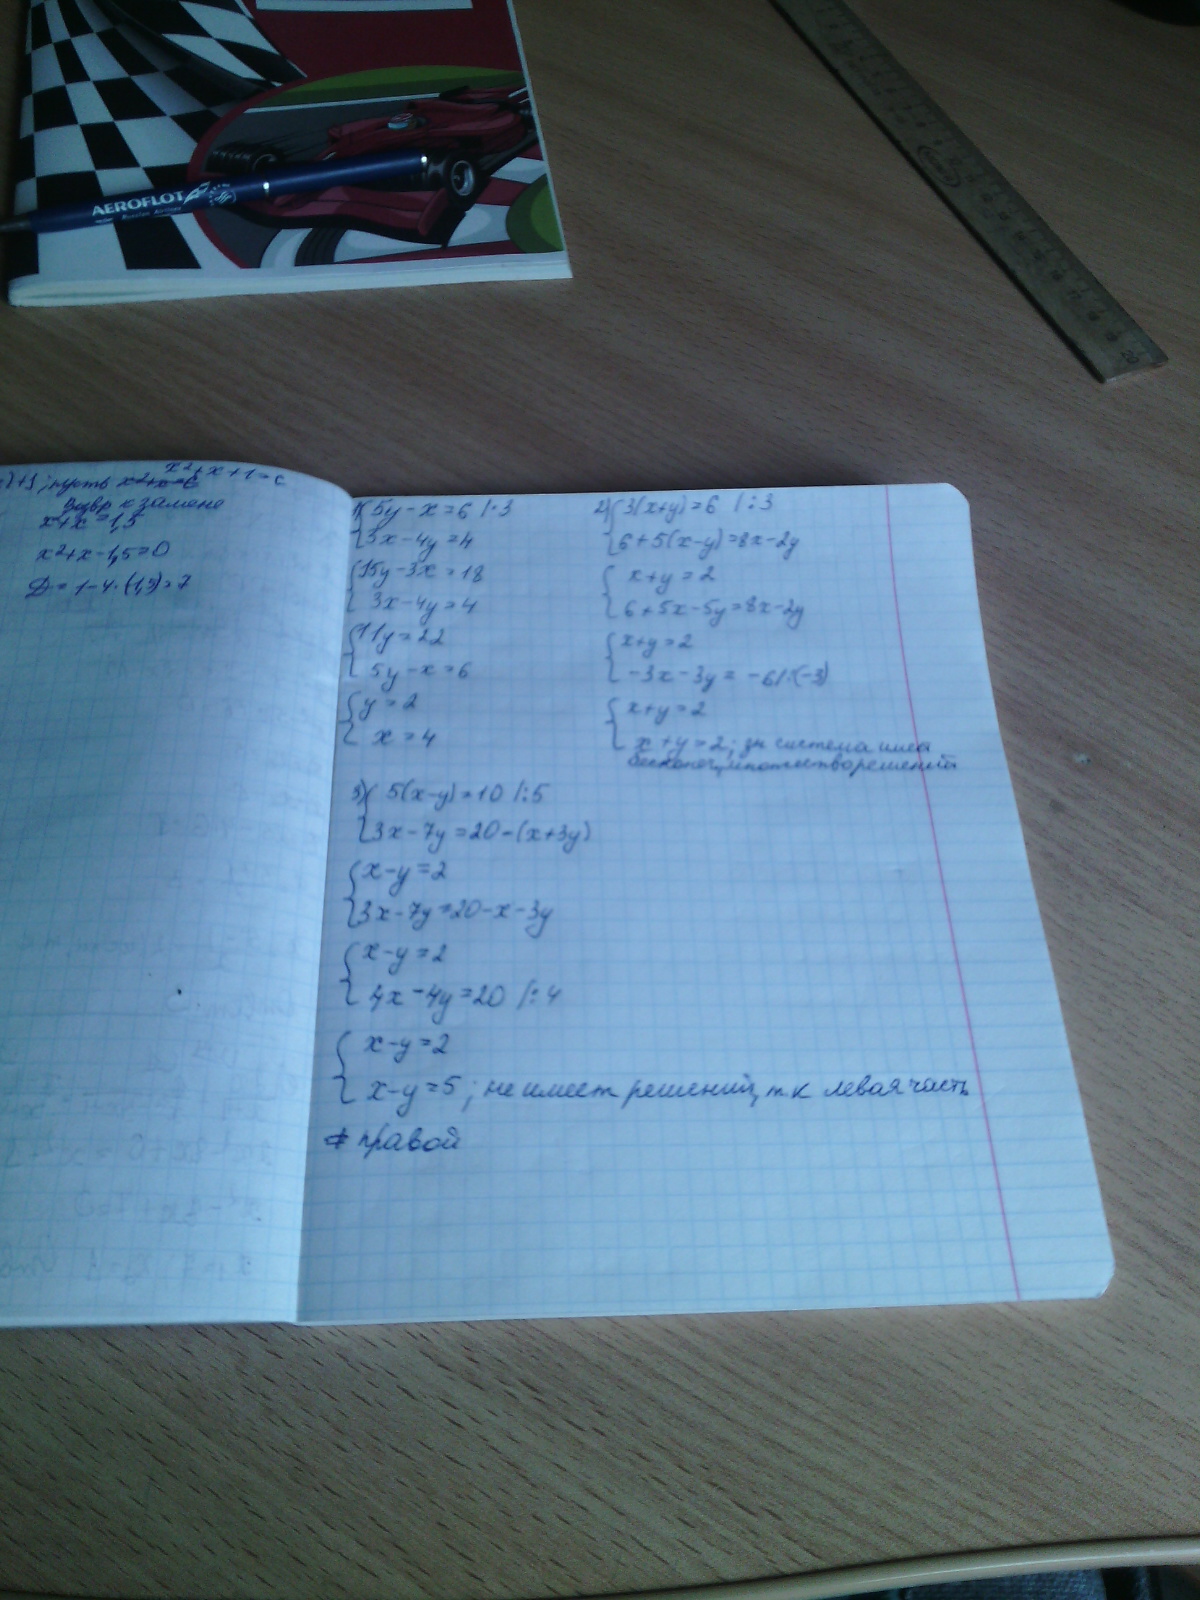 AEROFLOT
Russian Airlines
20
x²+x+1=c
)+1; пусть x²+x=c
Взвр к замене
x²+x=1,5
x²+x-1,5=0
D=1-4·(1,5)=7
1){5y-x=6 |·3
{3x-4y=4
{15y-3x=18
{3x-4y=4
{11y=22
{5y-x=6
{y=2
{x=4
2){3(x+y)=6 |:3
{6+5(x-y)=8x-2y
{x+y=2
{6+5x-5y=8x-2y
{x+y=2
{-3x-3y=-6|:(-3)
{x+y=2
{x+y=2; система имеет
бесконеч. множество решений
3){5(x-y)=10 |:5
{3x-7y=20-(x+3y)
{x-y=2
{3x-7y=20-x-3y
{x-y=2
{4x-4y=20 |:4
{x-y=2
{x-y=5; не имеет решений, т.к левая часть
≠ правой